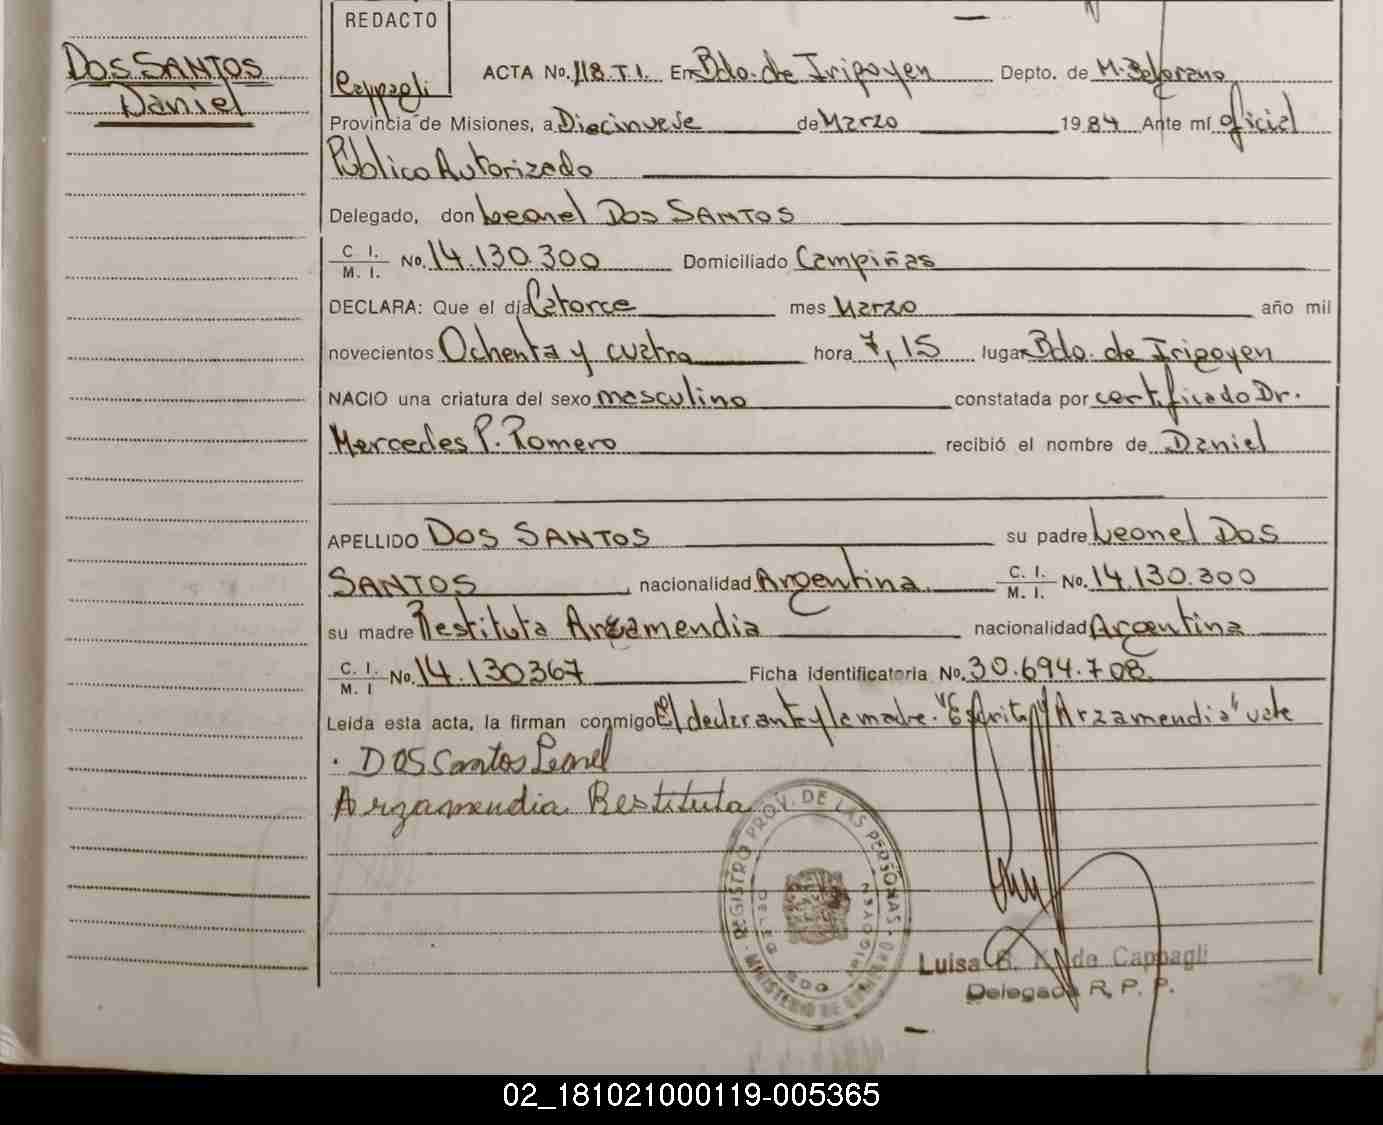 DOS SANTOS
Daniel
REDACTO
Cappagli
ACTA No. 118.T.I. En Bdo. de Irigoyen Depto. de M. Belgrano
Provincia de Misiones, a Diecinueve de Marzo 1984 Ante mí oficial
Público Autorizado
Delegado, don Leonel Dos SANTOS
C. I. M. I. No. 14.130.300 Domiciliado Campiñas
DECLARA: Que el día Catorce mes Marzo año mil
novecientos Ochenta y cuatro hora 7,15 lugar Bdo. de Irigoyen
NACIO una criatura del sexo masculino constatada por certificado Dr.
Mercedes P. Romero recibió el nombre de Daniel
APELLIDO DOS SANTOS su padre Leonel Dos
SANTOS, nacionalidad Argentina C. I. M. I. No. 14.130.300
su madre Restituta Arzamendia nacionalidad Argentina
C. I. M. I No. 14.130367 Ficha identificatoria No. 30.694.708
Leída esta acta, la firman conmigo El declarante y la madre. "Arzamendia" vale
DOS Santos Leonel
Arzamendia Restituta
REGISTRO PROV. DE LAS PERSONAS
MINISTERIO DE GOBIERNO
Luisa B. K. de Cappagli
Delegada R. P. P.
02_181021000119-005365